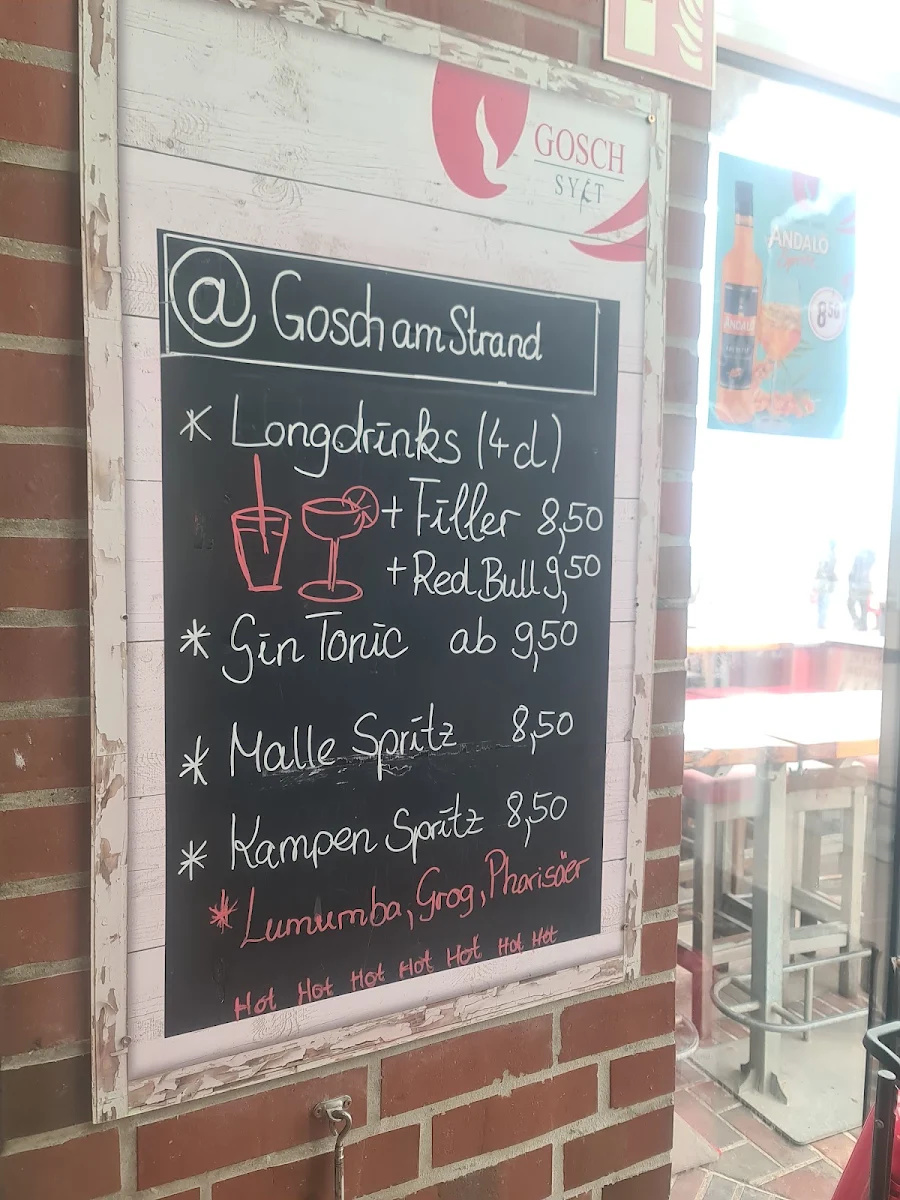 GOSCH
SYLT
@ Gosch am Strand
* Longdrinks (4cl)
+ Filler 8,50
+ Red Bull 9,50
* Gin Tonic ab 9,50
* Malle Spritz 8,50
* Kampen Spritz 8,50
* Lumumba, Grog, Pharisäer
Hot Hot Hot Hot Hot Hot Hot
ANDALÖ
Spritz
8⁵⁰
ANDALÖ